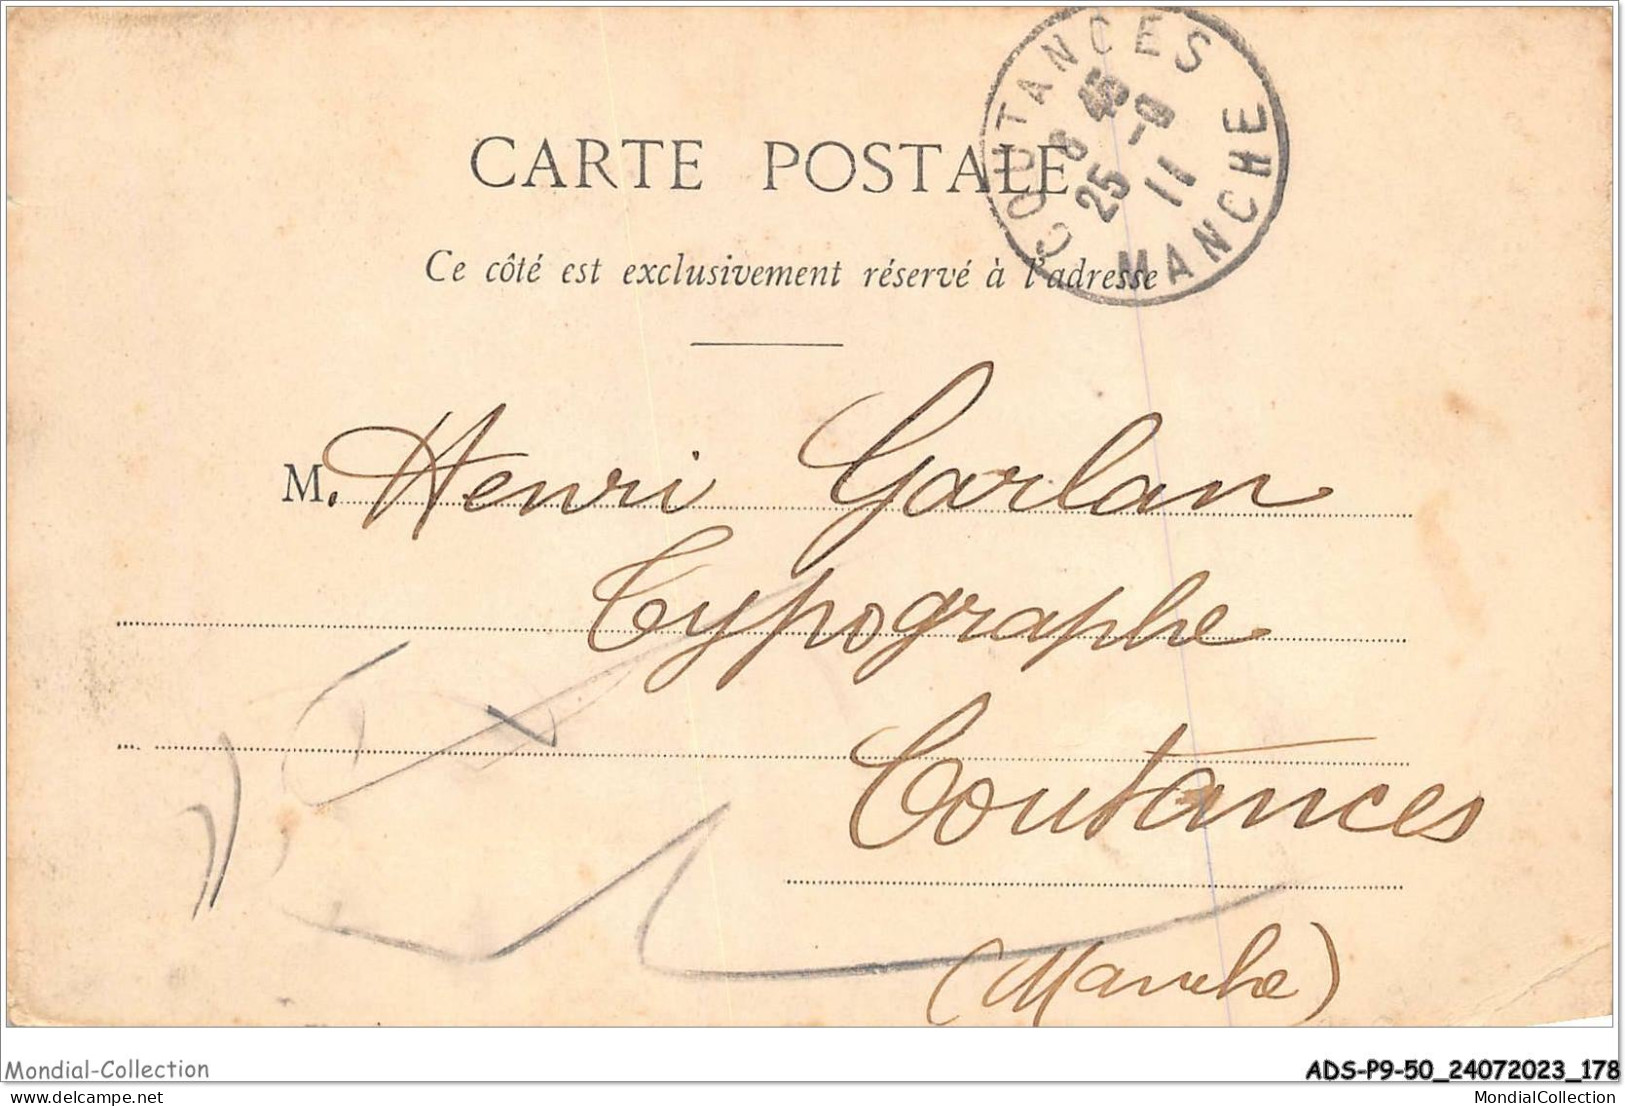 COUTANCES
8 45
25 -9
11
MANCHE
CARTE POSTALE
Ce côté est exclusivement réservé à l'adresse
M. Henri Garlan
Typographe
Coutances
(Manche)
Mondial-Collection
ADS-P9-50_24072023_178
mondial-collection.com
MondialCollection